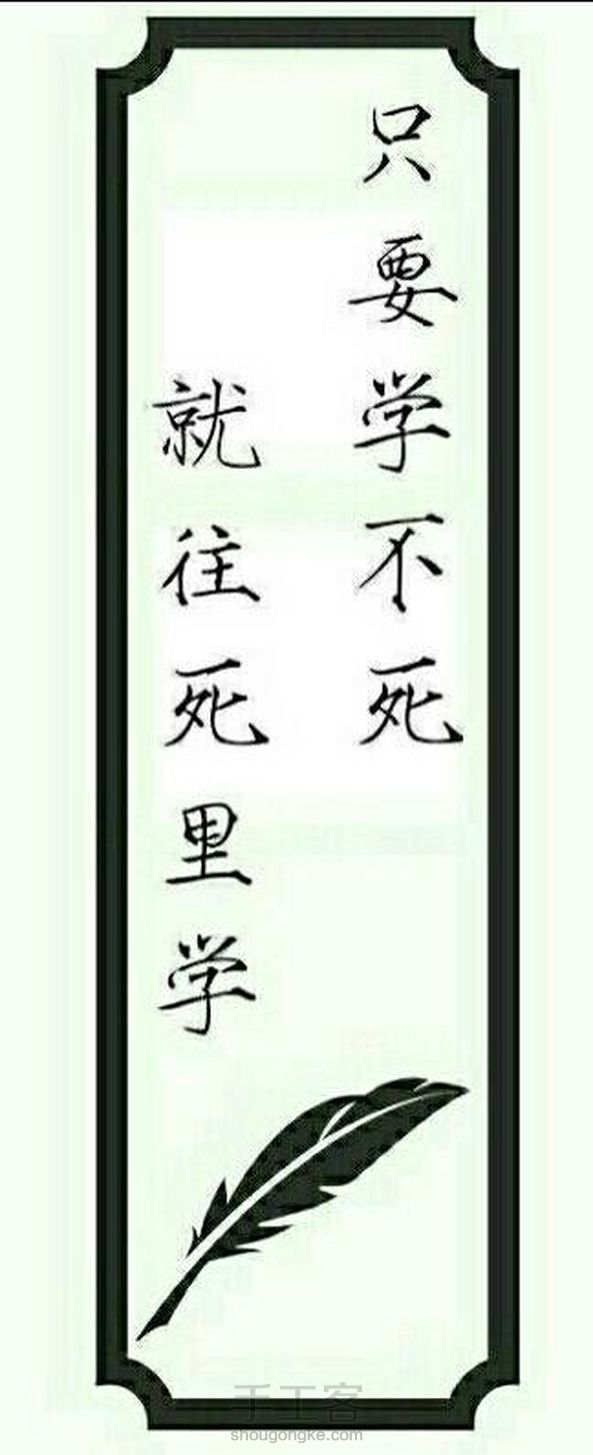 只要学不死
就往死里学
手工客
shougongke.com